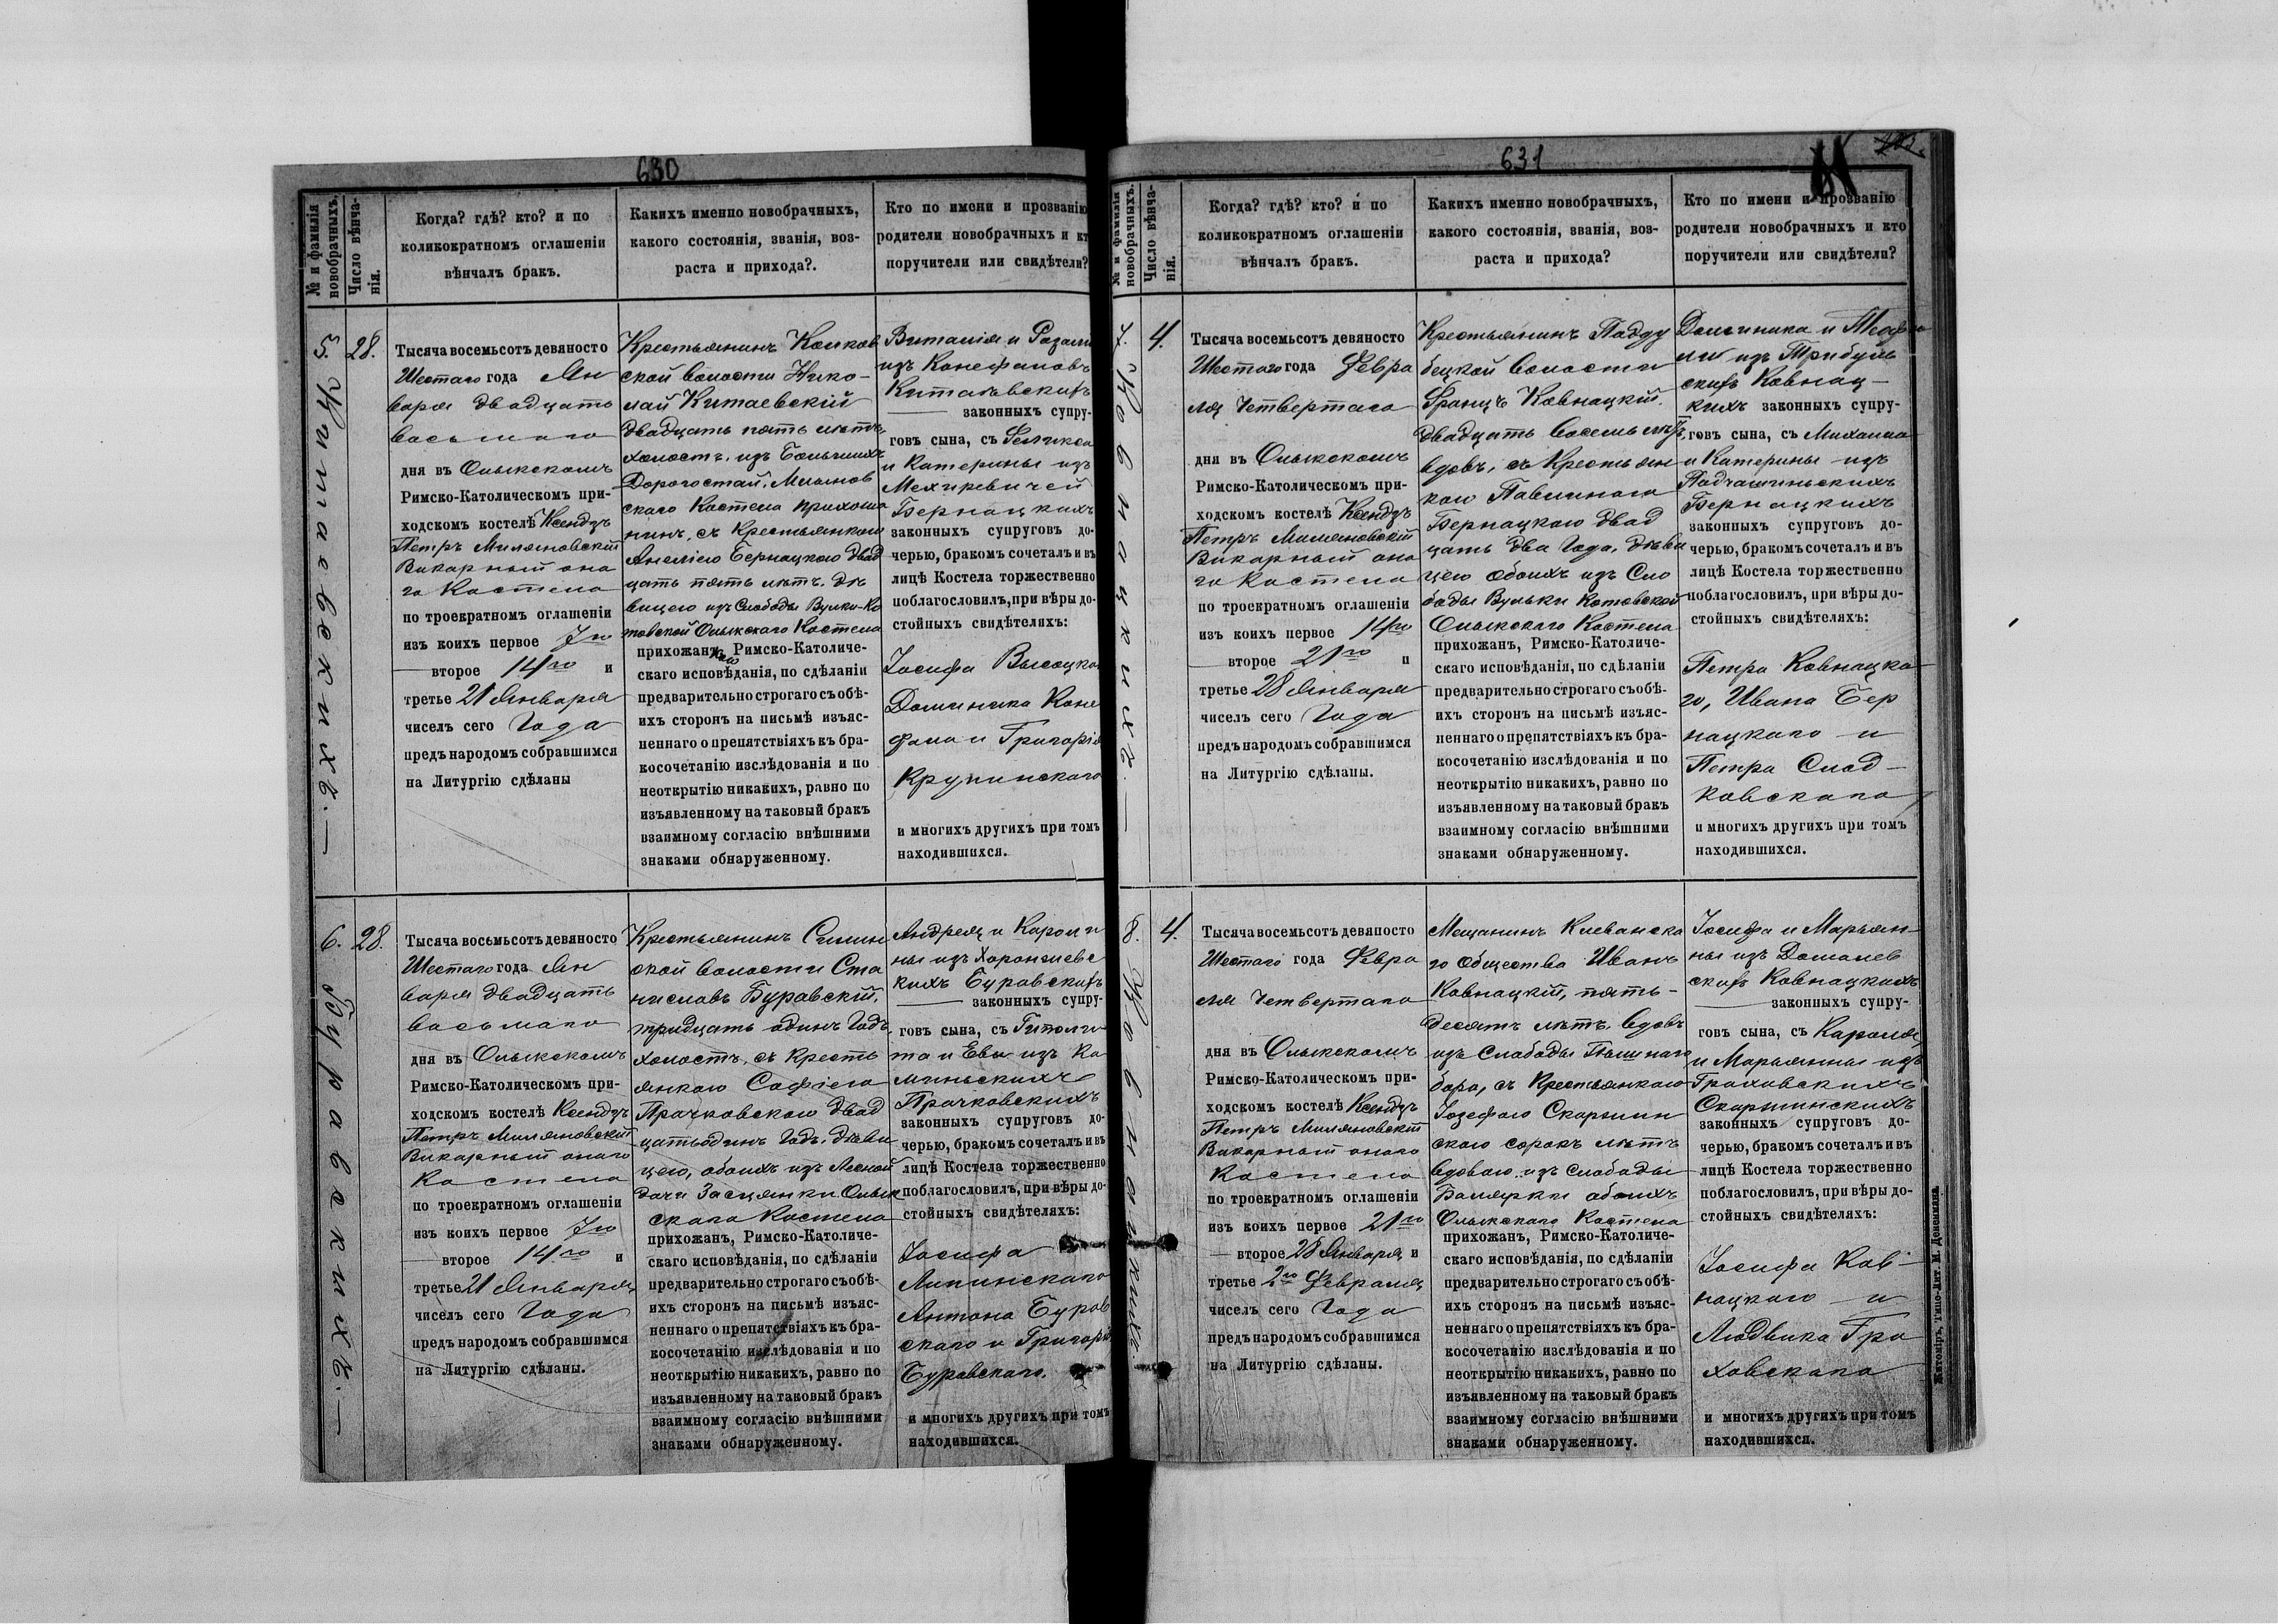 630
№ и фамилія
новобрачныхъ.
Число вѣнча-
нія.
Когда? гдѣ? кто? и по
коликократномъ оглашеніи
вѣнчалъ бракъ.
Какихъ именно новобрачныхъ,
какого состоянія, званія, воз-
раста и прихода?.
Кто по имени и прозванію
родители новобрачныхъ и кт
поручители или свидѣтели?
5. Китаевскихъ. —
28.
Тысяча восемьсотъ девяносто
Шестаго года Ян
варя двадцать
восьмаго
дня въ Олыкскомъ
Римско-Католическомъ при-
ходскомъ костелѣ Ксендзъ
Петръ Миляновскій
Викарный она
го Костела
по троекратномъ оглашеніи
изъ коихъ первое 7го
второе 14го и
третье 21 Января
чиселъ сего Года
предъ народомъ собравшимся
на Литургію сдѣланы
Крестьянинъ Колков
ской волости Нико-
лай Китаевскій
двадцать пять лѣтъ,
холостъ, изъ Большихъ
Дорогостай, Млынов
скаго Костела прихожа
нинъ, съ Крестьянкою
Анеліею Бернацкою двад
цать пять лѣтъ, дѣ
вицею изъ Слободы Вулки-Ко
товской Олыкскаго Костела
прихожанъ, Римско-Католиче-
скаго исповѣданія, по сдѣланіи
предварительно строгаго съ обѣ-
ихъ сторонъ на письмѣ изъяс-
неннаго о препятствіяхъ къ бра-
косочетанію изслѣдованія и по
неоткрытію никакихъ, равно по
изъявленному на таковый бракъ
взаимному согласію внѣшними
знаками обнаруженному.
Виталія и Розалі
изъ Конефаловъ
Китаевскихъ
законныхъ супру-
говъ сына, съ Феликса
и Катерины изъ
Мехиревичей
Бернацкихъ
законныхъ супруговъ до-
черью, бракомъ сочеталъ и въ
лицѣ Костела торжественно
поблагословилъ, при вѣры до-
стойныхъ свидѣтеляхъ:
Іосифа Высоцка
Доминика Коне
фала и Григорія
Крупинскаго
и многихъ другихъ при томъ
находившихся.
6. Буравскихъ. —
28.
Тысяча восемьсотъ девяносто
Шестаго года Ян
варя двадцать
восьмаго
дня въ Олыкскомъ
Римско-Католическомъ при-
ходскомъ костелѣ Ксендзъ
Петръ Миляновскій
Викарный онаго
Костела
по троекратномъ оглашеніи
изъ коихъ первое 7го
второе 14го и
третье 21 Января
чиселъ сего Года
предъ народомъ собравшимся
на Литургію сдѣланы.
Крестьянинъ
ской волости Ста
ниславъ Буравскій,
тридцать одинъ Годъ,
холостъ, съ Кресть
янкою Софіею
Прачковскою двад
цать одинъ Годъ, дѣви
цею, обоихъ изъ Лесной
дачи Засцянки Олык
скаго Костела
прихожанъ, Римско-Католиче-
скаго исповѣданія, по сдѣланіи
предварительно строгаго съ обѣ-
ихъ сторонъ на письмѣ изъяс-
неннаго о препятствіяхъ къ бра-
косочетанію изслѣдованія и по
неоткрытію никакихъ, равно по
изъявленному на таковый бракъ
взаимному согласію внѣшними
знаками обнаруженному.
Андрея и Кароли
ны изъ
кихъ Буравскихъ
законныхъ супру-
говъ сына, съ Гиполи
та и Евы изъ Ка
миньскихъ
Прачковскихъ
законныхъ супруговъ до-
черью, бракомъ сочеталъ и въ
лицѣ Костела торжественно
поблагословилъ, при вѣры до-
стойныхъ свидѣтеляхъ:
Іосифа
Липинскаго
Антона Бурав
скаго и Григорі
Буравскаго.
и многихъ другихъ при томъ
находившихся.
631
№ и фамилія
новобрачныхъ.
Число вѣнча-
нія.
Когда? гдѣ? кто? и по
коликократномъ оглашеніи
вѣнчалъ бракъ.
Какихъ именно новобрачныхъ,
какого состоянія, званія, воз-
раста и прихода?
Кто по имени и прозванію
родители новобрачныхъ и кто
поручители или свидѣтели?
7. Ковнацкихъ. —
4.
Тысяча восемьсотъ девяносто
Шестаго года Февра
ля Четвертаго
дня въ Олыкскомъ
Римско-Католическомъ при-
ходскомъ костелѣ Ксендзъ
Петръ Миляновскій
Викарный она
го Костела
по троекратномъ оглашеніи
изъ коихъ первое 14го
второе 21го и
третье 28 Января
чиселъ сего Года
предъ народомъ собравшимся
на Литургію сдѣланы.
Крестьянинъ Подду
бецкой волости
Францъ Ковнацкій
двадцать восемь лѣтъ,
вдовъ, съ Крестьян
кою Павлиною
Бернацкою двад
цать два Года, дѣви
цею обоихъ изъ Сло
боды Вульки Котовской
Олыкскаго Костела
прихожанъ, Римско-Католиче-
скаго исповѣданія, по сдѣланіи
предварительно строгаго съ обѣ-
ихъ сторонъ на письмѣ изъяс-
неннаго о препятствіяхъ къ бра-
косочетанію изслѣдованія и по
неоткрытію никакихъ, равно по
изъявленному на таковый бракъ
взаимному согласію внѣшними
знаками обнаруженному.
Доминика и Теофи
лии изъ Трибуль
скихъ Ковнац-
кихъ законныхъ супру-
говъ сына, съ Михаила
и Катерины изъ
Бернацкихъ
законныхъ супруговъ до-
черью, бракомъ сочеталъ и въ
лицѣ Костела торжественно
поблагословилъ, при вѣры до-
стойныхъ свидѣтеляхъ:
Петра Ковнацка-
го, Ивана Бер
нацкаго и
Петра Слад-
ковскаго
и многихъ другихъ при томъ
находившихся.
8. Ковнацкихъ.
4.
Тысяча восемьсотъ девяносто
Шестаго года Февра
ля Четвертаго
дня въ Олыкскомъ
Римско-Католическомъ при-
ходскомъ костелѣ Ксендзъ
Петръ Миляновскій
Викарный онаго
Костела
по троекратномъ оглашеніи
изъ коихъ первое 21го
второе 28 Января и
третье 2го Февраля
чиселъ сего Года
предъ народомъ собравшимся
на Литургію сдѣланы.
Мещанинъ Клеванска
го Общества Иванъ
Ковнацкій, пять-
десятъ лѣтъ, вдовъ
изъ Слободы
бора, съ Крестьянкою
Іозефою Скаржин
скою сорокъ лѣтъ
вдовою изъ слободы
Балярки обоихъ
Олыкскаго Костела
прихожанъ, Римско-Католиче-
скаго исповѣданія, по сдѣланіи
предварительно строгаго съ обѣ-
ихъ сторонъ на письмѣ изъяс-
неннаго о препятствіяхъ къ бра-
косочетанію изслѣдованія и по
неоткрытію никакихъ, равно по
изъявленному на таковый бракъ
взаимному согласію внѣшними
знаками обнаруженному.
Іосифа и Марьян-
ны изъ Домалев
скихъ Ковнацкихъ
законныхъ супру-
говъ сына, съ Кароля
и Марьянны изъ
Граховскихъ
Скаржинскихъ
законныхъ супруговъ до-
черью, бракомъ сочеталъ и въ
лицѣ Костела торжественно
поблагословилъ, при вѣры до-
стойныхъ свидѣтеляхъ:
Іосифа Ков-
нацкаго и
Людвика Гра
ховскаго
и многихъ другихъ при томъ
находившихся.
Житоміръ, Типо-Лит. М. Дененмана.